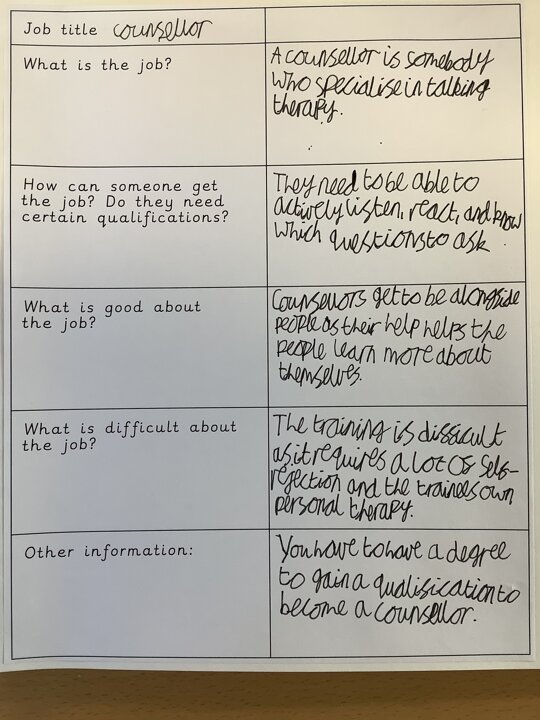 Job title counsellor
What is the job?
A counsellor is somebody
who specialise in talking
therapy.
How can someone get
the job? Do they need
certain qualifications?
They need to be able to
actively listen, react, and know
which questions to ask.
What is good about
the job?
Counsellors get to be alongside
people as their help helps the
people learn more about
themselves.
What is difficult about
the job?
The training is difficult
as it requires a lot of self-
rejection and the trainees own
personal therapy.
Other information:
You have to have a degree
to gain a qualification to
become a counsellor.